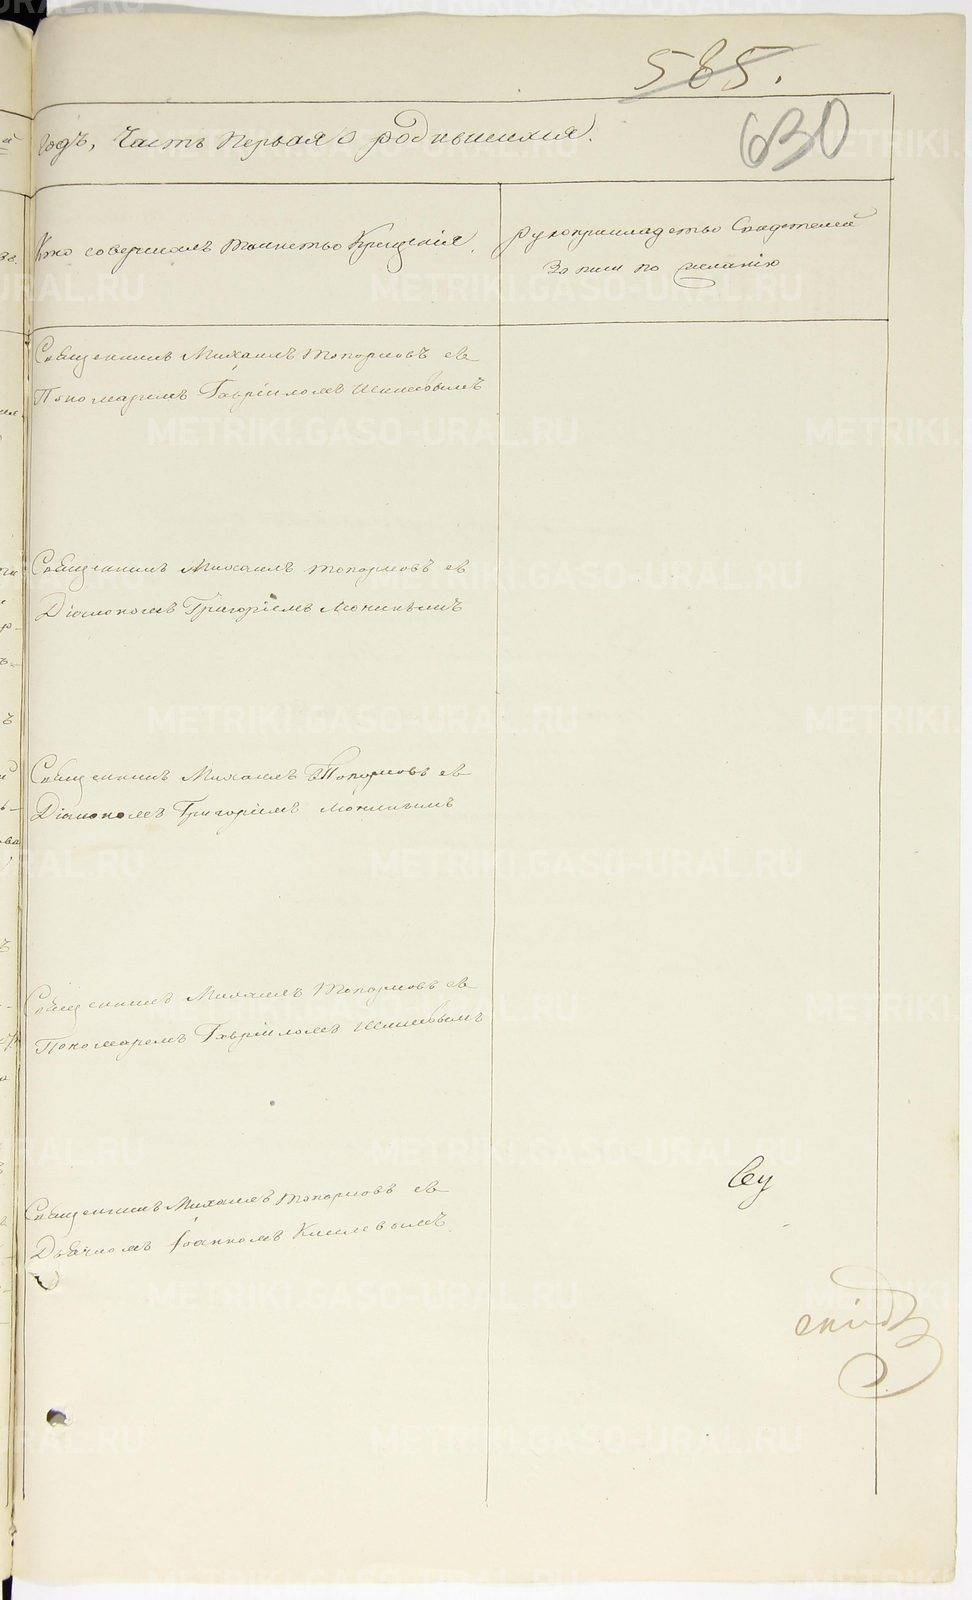 585.
630
Годъ, Часть Первая о родившихся.
Кто совершалъ таинство Крещенія.
Рукоприкладство Свидетелей
Записи по желанію
Священникъ Михаилъ Топорковъ съ
Пономаремъ Гавріиломъ Шишовымъ
Священникъ Михаилъ Топорковъ съ
Діакономъ Григоріемъ
Священникъ Михаилъ Топорковъ съ
Діакономъ Григоріемъ
Священникъ Михаилъ Топорковъ съ
Пономаремъ Гавріиломъ Шишовымъ
Священникъ Михаилъ Топорковъ съ
Дьячкомъ Іоанномъ Киселевымъ
METRIKI.GASO-URAL.RU